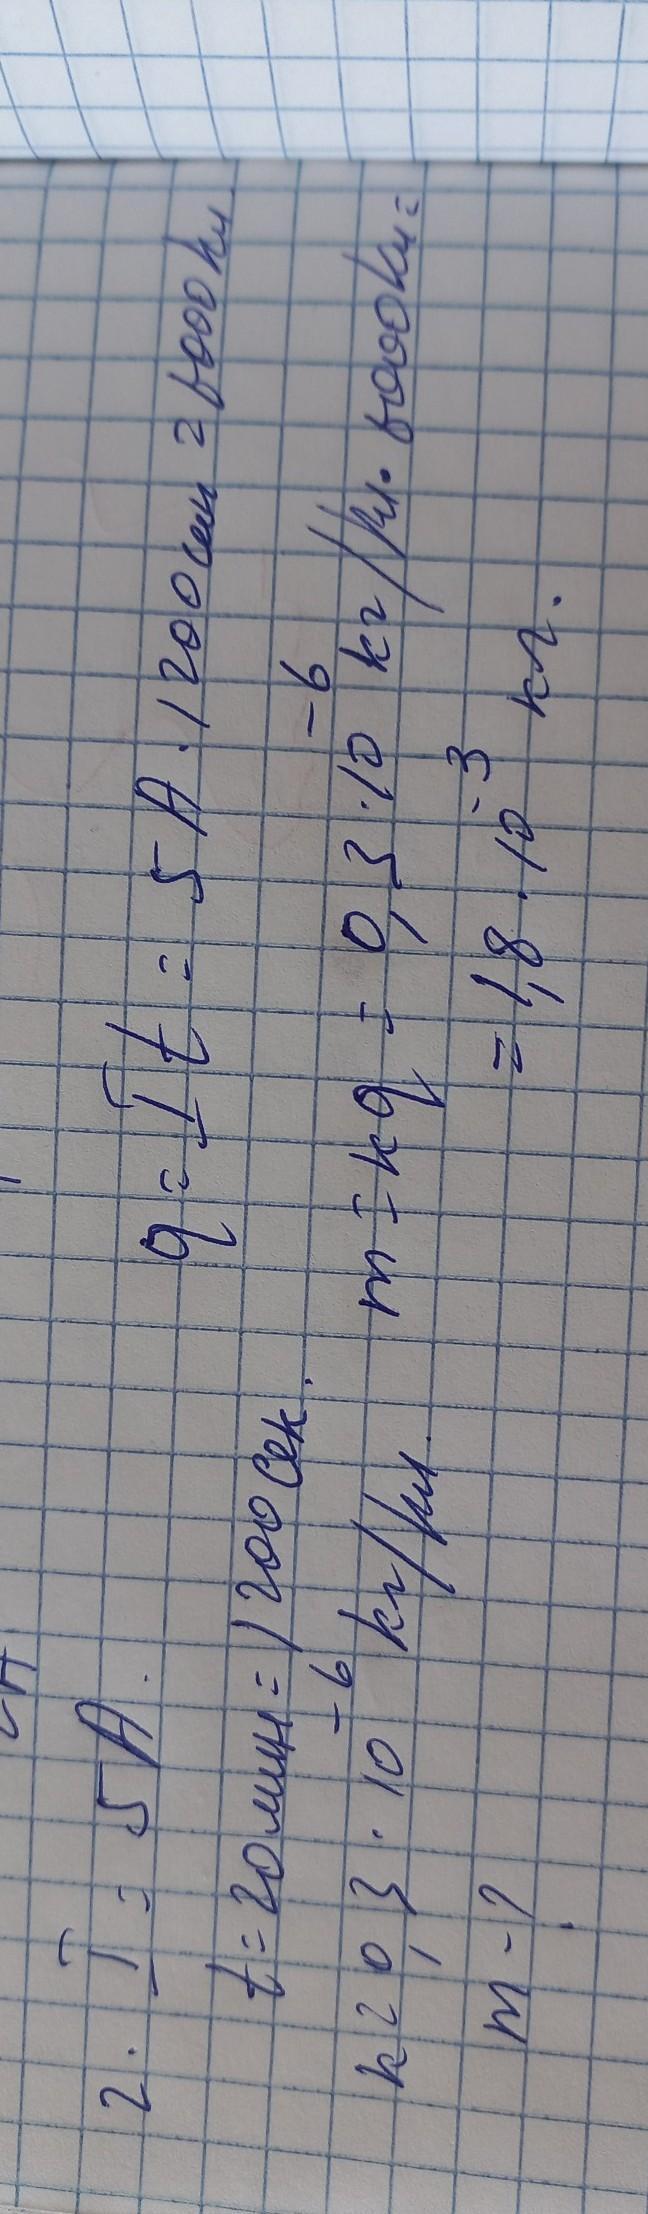 2. I = 5 А.
t = 20 мин = 1200 сек.
k = 0,3 · 10⁻⁶ кг/кл.
m - ?
q = It = 5 А · 1200 сек = 6000 кл
m = kq = 0,3 · 10⁻⁶ кг/кл · 6000 кл =
= 1,8 · 10⁻³ кг.